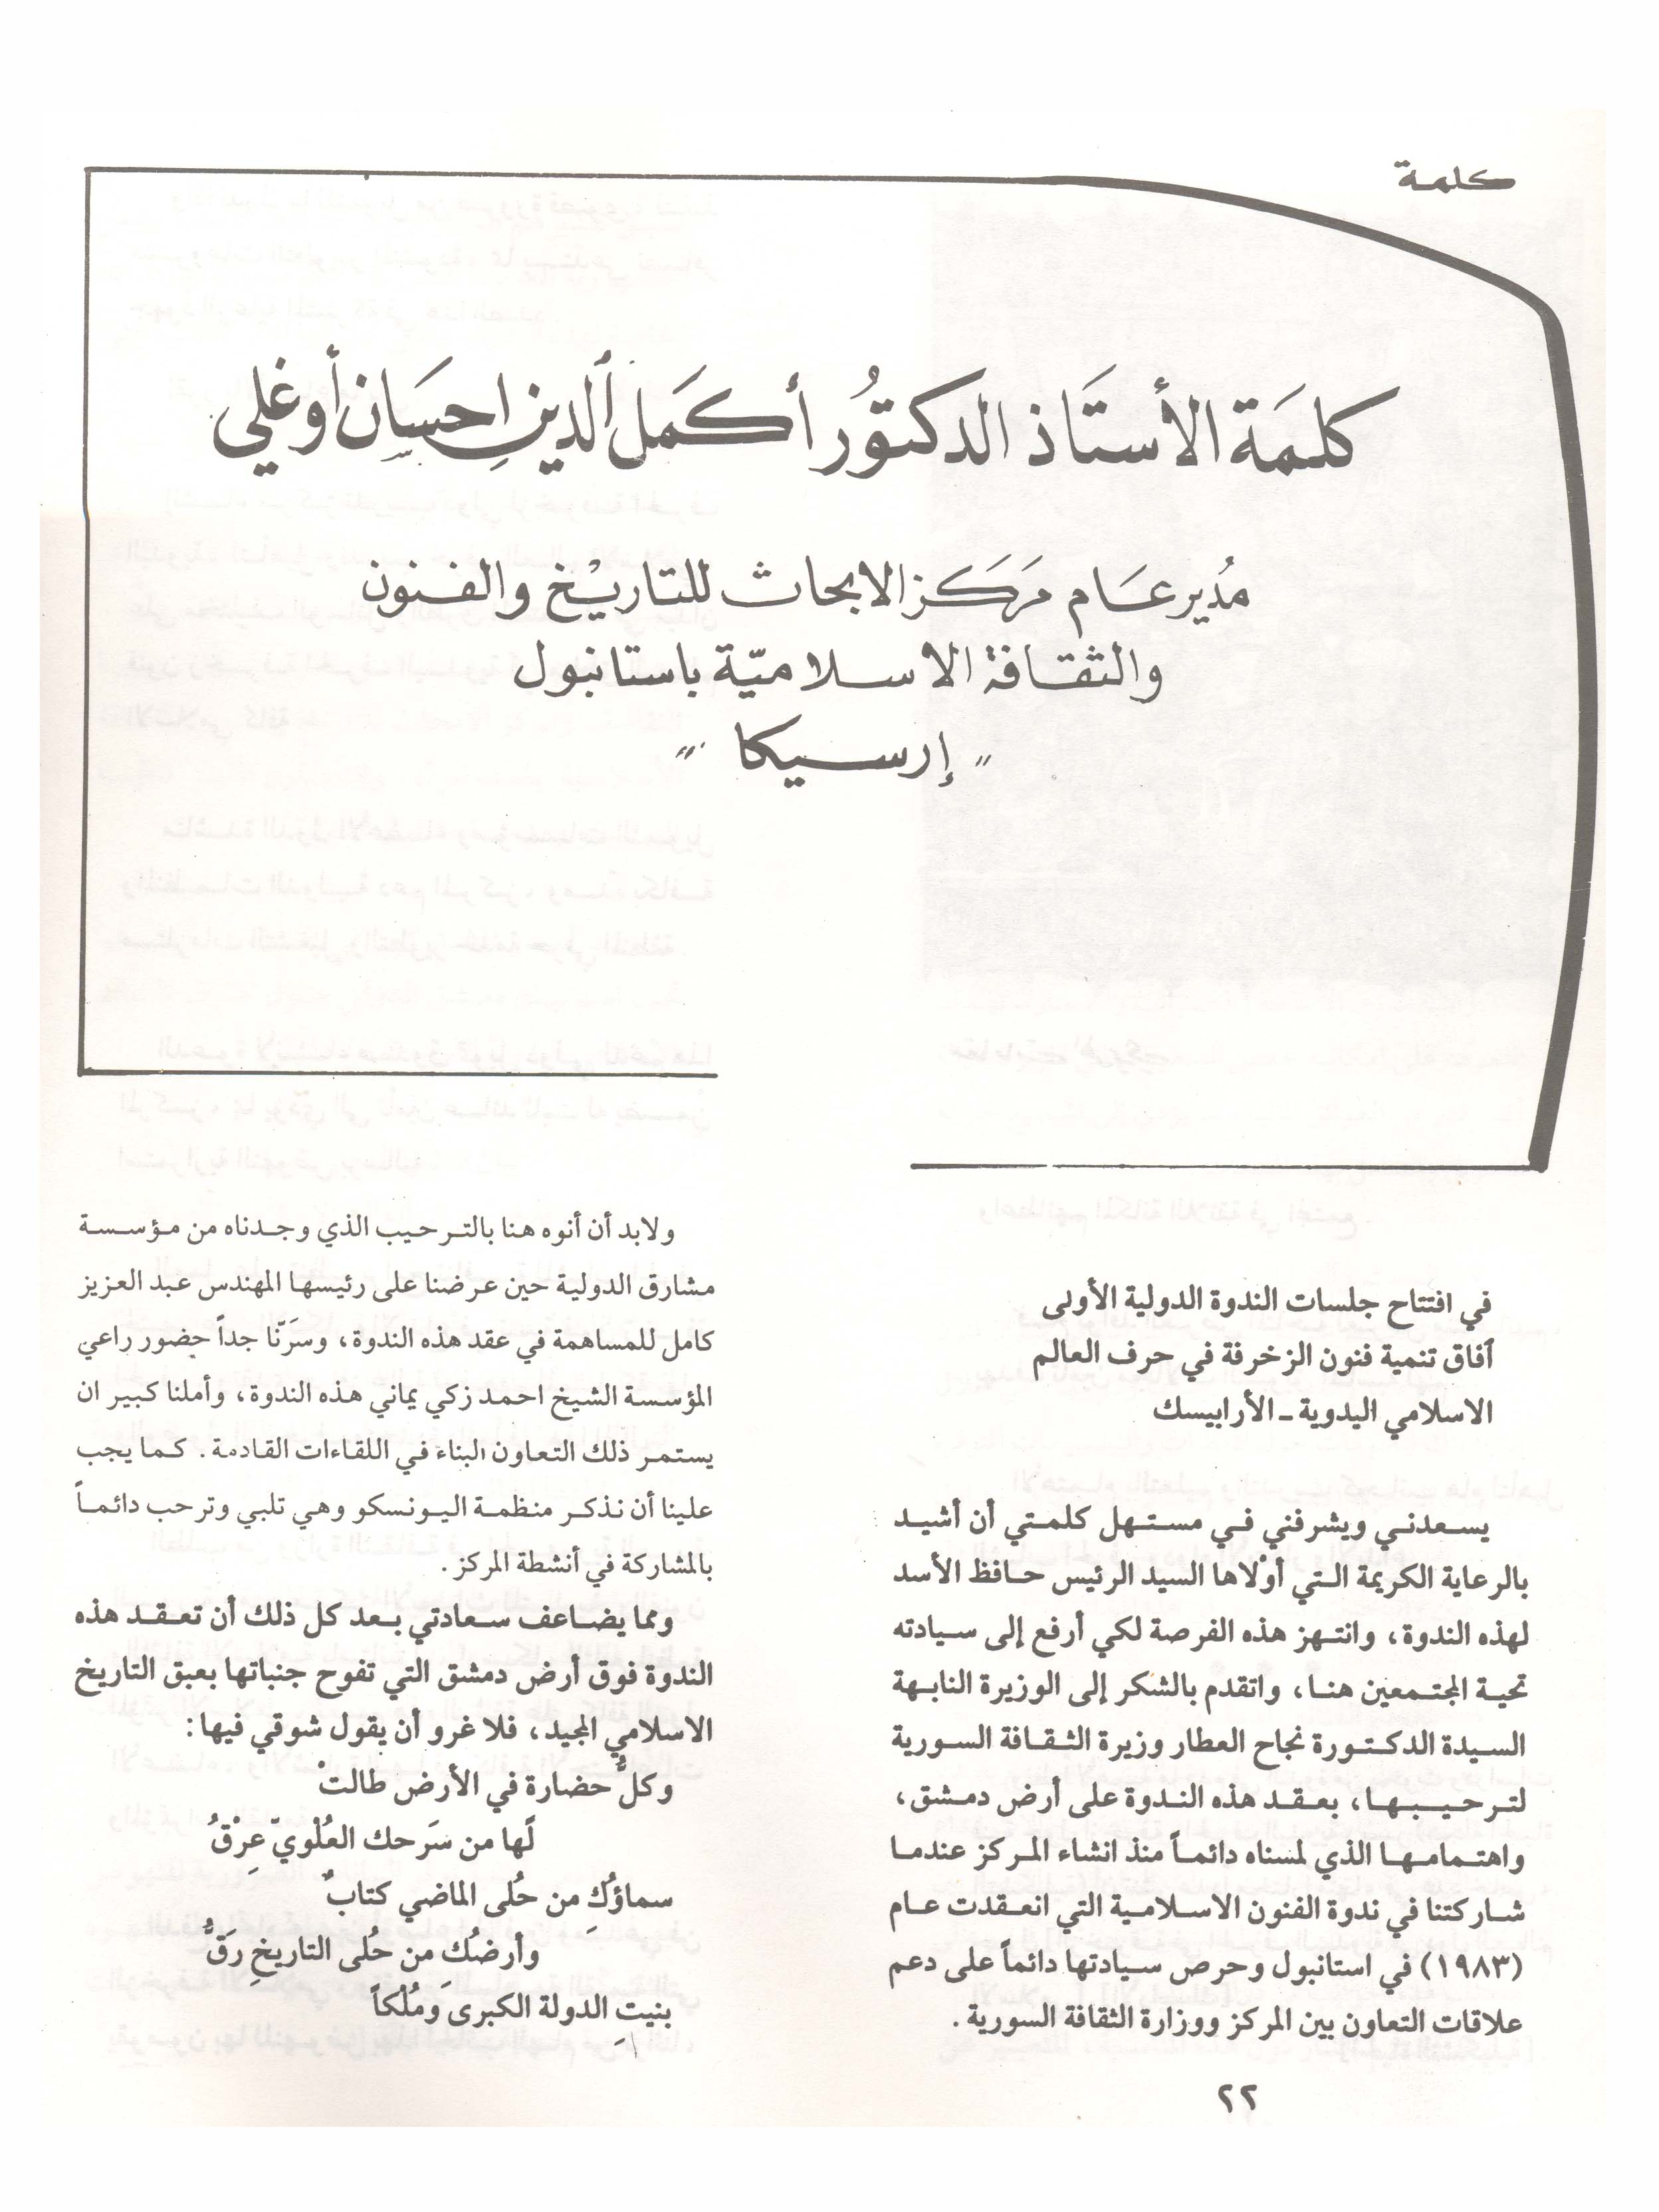 كلمة
كلمَة الأستَاذ الدكتوُر أكمَل ٱلدين احسَان أوغلي
مُدير عَام مَركَز الابحاث للتاريْخ والفنون
والثقافة الاسلاميّة باستانبول
"إرسيكا"
في افتتاح جلسات الندوة الدولية الأولى
آفاق تنمية فنون الزخرفة في حرف العالم
الاسلامي اليدوية ـ الأرابيسك
يسعدني ويشرفني في مستهل كلمتي أن أشيد
بالرعاية الكريمة التي أوْلاها السيد الرئيس حافظ الأسد
لهذه الندوة، وانتهز هذه الفرصة لكي أرفع إلى سيادته
تحية المجتمعين هنا، واتقدم بالشكر إلى الوزيرة النابهة
السيدة الدكتورة نجاح العطار وزيرة الثقافة السورية
لترحيبها، بعقد هذه الندوة على أرض دمشق،
واهتمامها الذي لمسناه دائماً منذ انشاء المركز عندما
شاركتنا في ندوة الفنون الاسلامية التي انعقدت عام
(١٩٨٣) في استانبول وحرص سيادتها دائماً على دعم
علاقات التعاون بين المركز ووزارة الثقافة السورية.
ولابد أن أنوه هنا بالترحيب الذي وجدناه من مؤسسة
مشارق الدولية حين عرضنا على رئيسها المهندس عبد العزيز
كامل للمساهمة في عقد هذه الندوة، وسَرّنا جداً حضور راعي
المؤسسة الشيخ احمد زكي يماني هذه الندوة، وأملنا كبير ان
يستمر ذلك التعاون البناء في اللقاءات القادمة. كما يجب
علينا أن نذكر منظمة اليونسكو وهي تلبي وترحب دائماً
بالمشاركة في أنشطة المركز.
ومما يضاعف سعادتي بعد كل ذلك أن تعقد هذه
الندوة فوق أرض دمشق التي تفوح جنباتها بعبق التاريخ
الاسلامي المجيد، فلا غرو أن يقول شوقي فيها:
وكلُّ حضارة في الأرض طالتْ
لَها من سَرحك العُلْويّ عِرْقُ
سماؤُكِ من حُلى الماضي كتابٌ
وأرضُكِ من حُلى التاريخِ رَقُّ
بنيتِ الدولة الكبرى وَمُلْكاً
٢٢